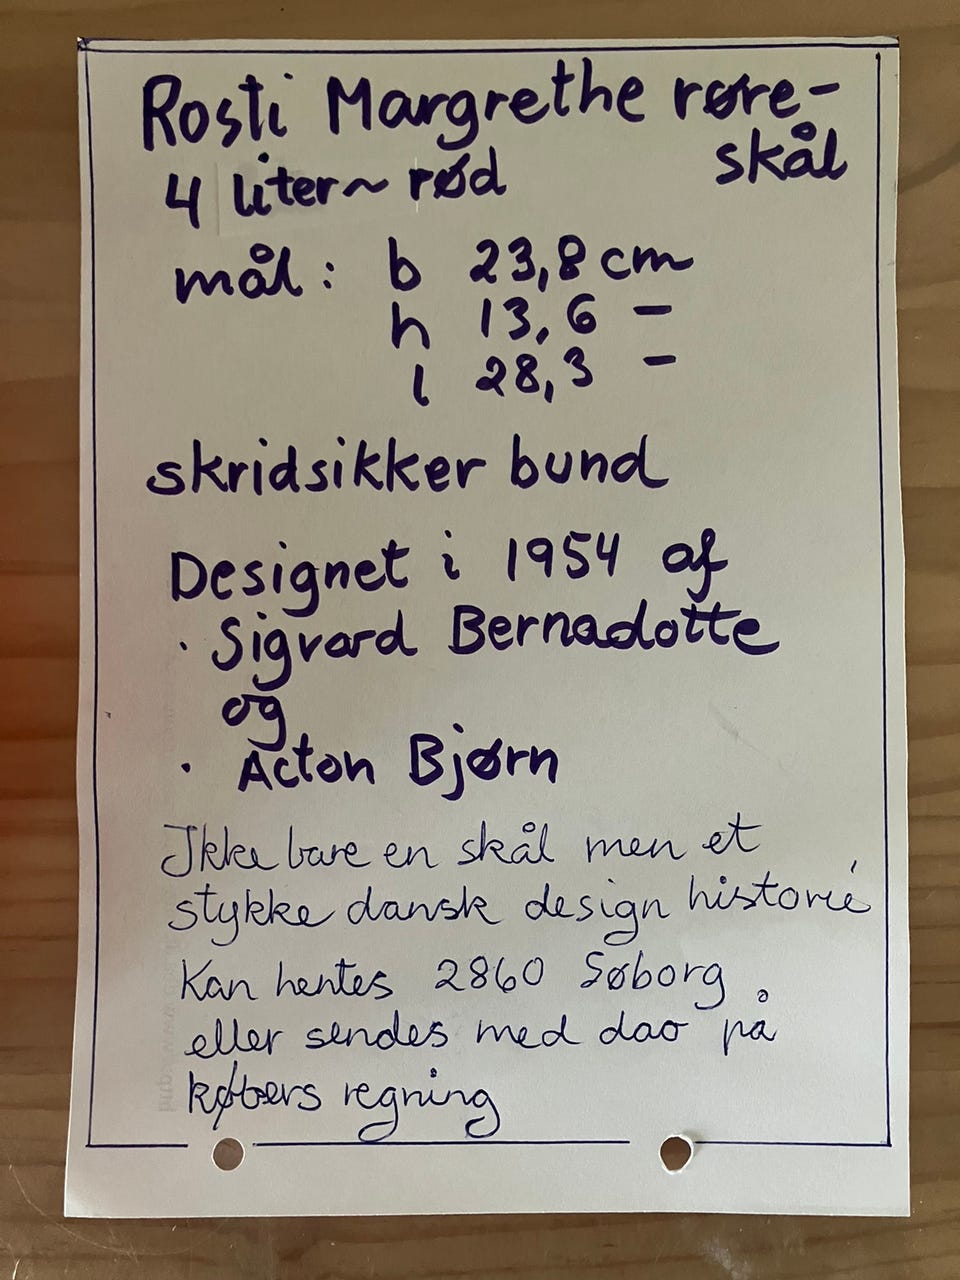 Rosti Margrethe røre-
skål
4 liter ~ rød
mål: b 23,8 cm
h 13,6 –
l 28,3 –
skridsikker bund
Designet i 1954 af
· Sigvard Bernadotte
og
· Acton Bjørn
Ikke bare en skål men et
stykke dansk design historie
Kan hentes 2860 Søborg
eller sendes med dao på
købers regning